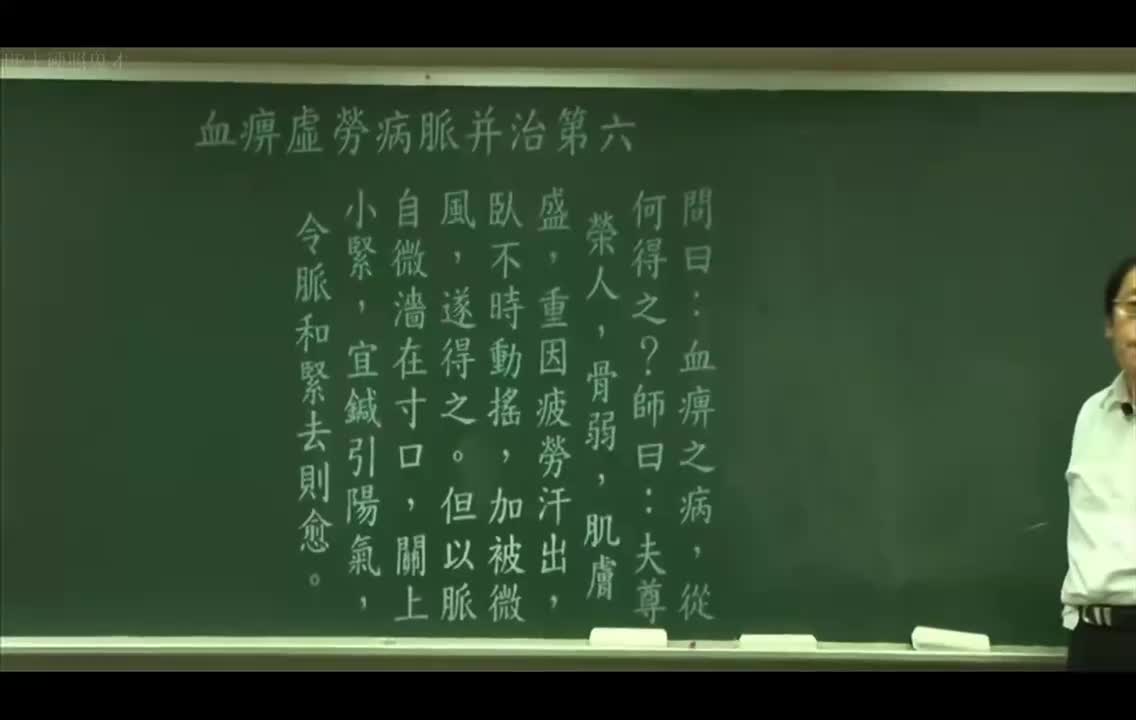 血痹虛勞病脈并治第六
問曰：血痹之病，從
何得之？師曰：夫尊
榮人，骨弱，肌膚
盛，重因疲勞汗出，
臥不時動搖，加被微
風，遂得之。但以脈
自微濇在寸口，關上
小緊，宜鍼引陽氣，
令脈和緊去則愈。